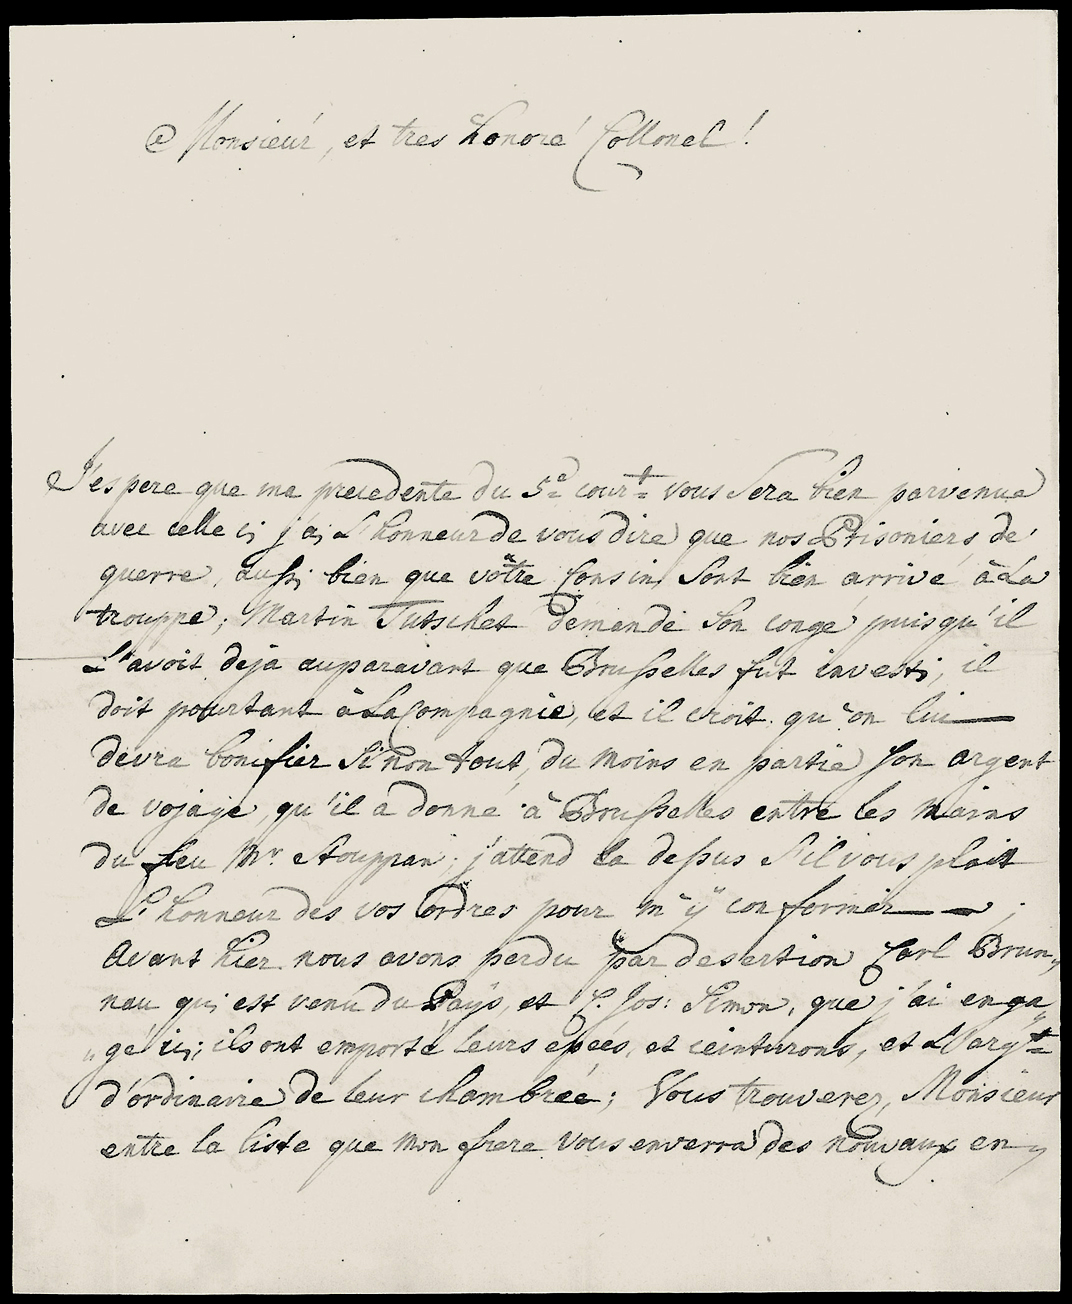 Monsieur, et tres honoré Collonel!
J'espere que ma precedente du 5e court vous sera bien parvenue
avec celle ci j'ai L'honneur de vous dire que nos Prisoniers de
guerre, aussi bien que vôtre Cousin, sont bien arrivé à La
trouppe; Martin Tutschet demande son congé puisqu'il
L'avoit deja auparavant que Brusselles fut investi, il
doit pourtant à La Compagnie, et il croit qu'on lui
devra bonifier si non tout, du moins en partie son argent
de vojage qu'il a donné à Brusselles entre les mains
du feu Mr Stouppan; j'attend la dessus s'il vous plait
L'honneur des vos ordres pour m'y conformer;
Avant hier nous avons perdu par desertion Carl Brun„
nau qui est venu du Pays, et C. Jos: Simon, que j'ai enga„
„gé ici; ils ont emporté leurs epées, et ceinturons, et L'argt
d'ordinaire de leur chambrée; Vous trouverez, Monsieur
entre la liste que mon frere vous enverra des nouvaux en„